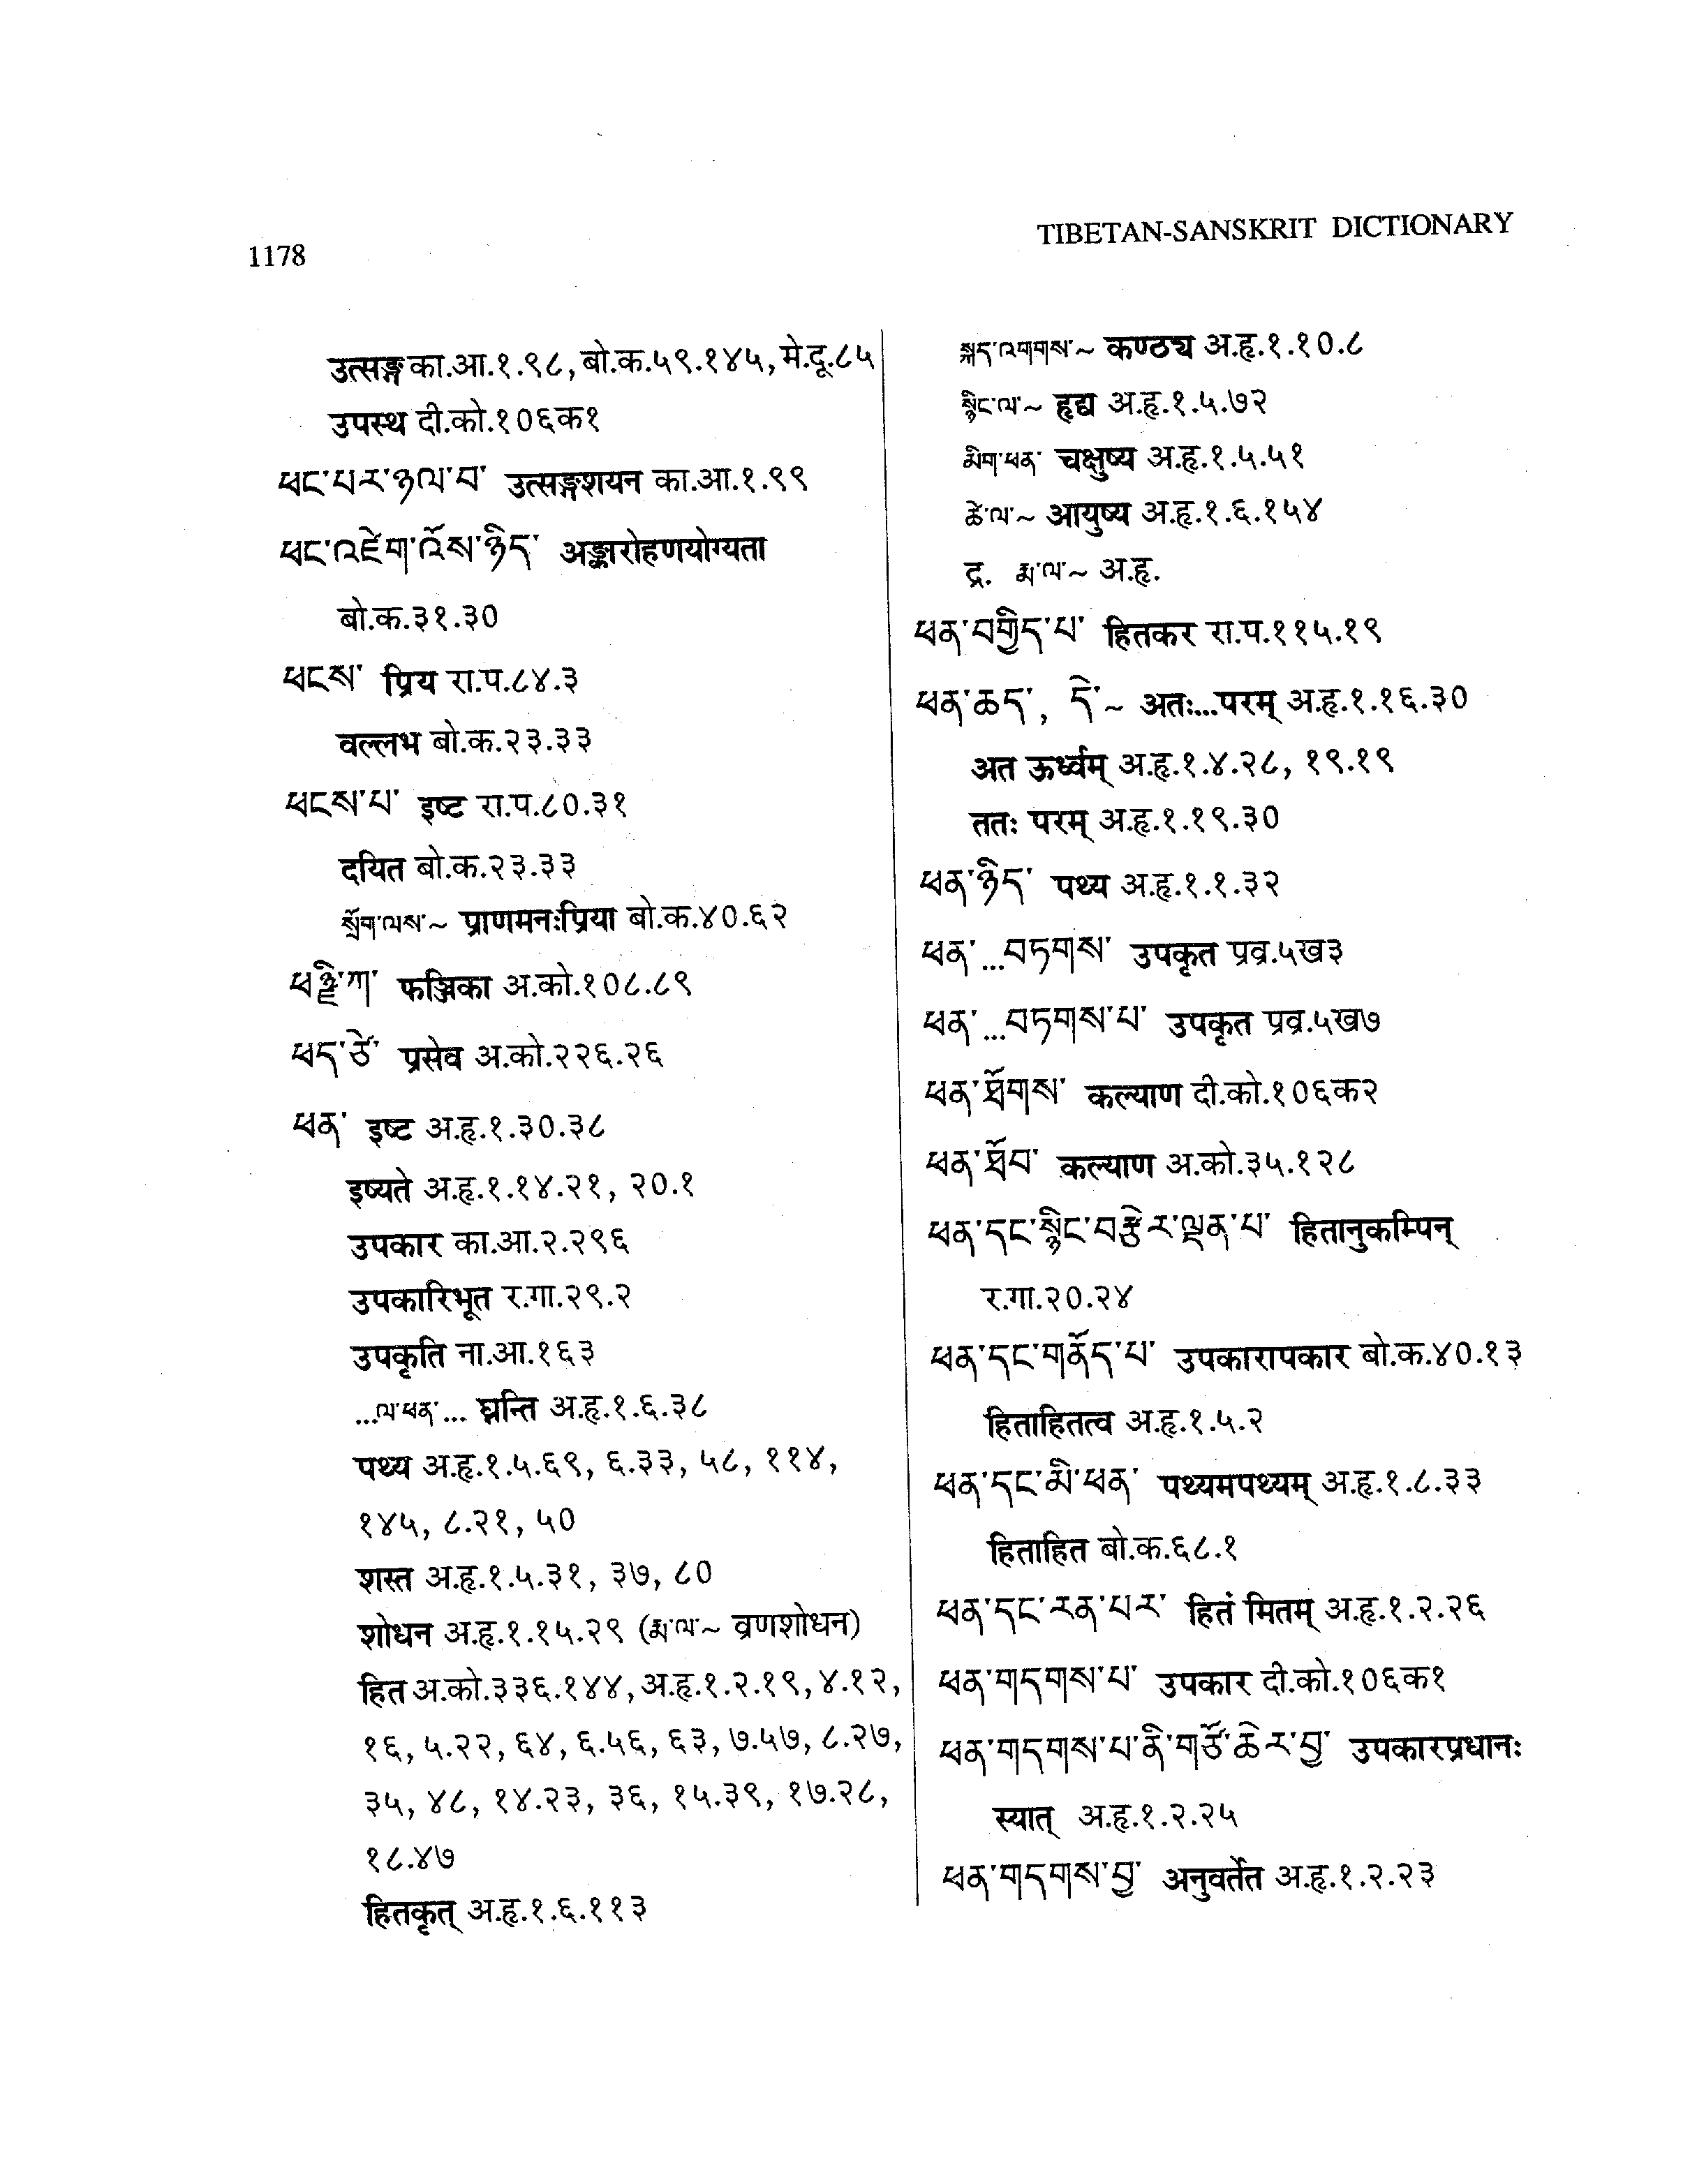 1178
TIBETAN-SANSKRIT DICTIONARY
उत्सङ्ग का.आ.१.९८, बो.क.५९.१४५, मे.दू.८५
उपस्थ दी.को.१०६क१
ཕང་པར་ཉལ་བ་ उत्सङ्गशयन का.आ.१.९९
ཕང་འཛེག་འོས་ཉིད་ अङ्कारोहणयोग्यता
बो.क.३१.३०
ཕངས་ प्रिय रा.प.८४.३
वल्लभ बो.क.२३.३३
ཕངས་པ་ इष्ट रा.प.८०.३१
दयित बो.क.२३.३३
སྲོག་ལས་~ प्राणमनःप्रिया बो.क.४०.६२
ཕཉྫི་ཀ་ फञ्जिका अ.को.१०८.८९
ཕད་ཙེ་ प्रसेव अ.को.२२६.२६
ཕན་ इष्ट अ.हृ.१.३०.३८
इष्यते अ.हृ.१.१४.२१, २०.१
उपकार का.आ.२.२९६
उपकारिभूत र.गा.२९.२
उपकृति ना.आ.१६३
...ལ་ཕན་... घ्नन्ति अ.हृ.१.६.३८
पथ्य अ.हृ.१.५.६९, ६.३३, ५८, ११४,
१४५, ८.२१, ५०
शस्त अ.हृ.१.५.३१, ३७, ८०
शोधन अ.हृ.१.१५.२९ (རྨ་ལ་~ व्रणशोधन)
हित अ.को.३३६.१४४, अ.हृ.१.२.१९, ४.१२,
१६, ५.२२, ६४, ६.५६, ६३, ७.५७, ८.२७,
३५, ४८, १४.२३, ३६, १५.३९, १७.२८,
१८.४७
हितकृत् अ.हृ.१.६.११३
སྐད་འགགས་~ कण्ठ्य अ.हृ.१.१०.८
སྙིང་ལ་~ हृद्य अ.हृ.१.५.७२
མིག་ཕན་ चक्षुष्य अ.हृ.१.५.५१
ཚེ་ལ་~ आयुष्य अ.हृ.१.६.१५४
द्र. རྨ་ལ་~ अ.हृ.
ཕན་བགྱིད་པ་ हितकर रा.प.११५.१९
ཕན་ཆད་, དེ་~ अतः...परम् अ.हृ.१.१६.३०
अत ऊर्ध्वम् अ.हृ.१.४.२८, १९.१९
ततः परम् अ.हृ.१.१९.३०
ཕན་ཉིད་ पथ्य अ.हृ.१.१.३२
ཕན་...བཏགས་ उपकृत प्रव्र.५ख३
ཕན་...བཏགས་པ་ उपकृत प्रव्र.५ख७
ཕན་ཐོགས་ कल्याण दी.को.१०६क२
ཕན་ཐོབ་ कल्याण अ.को.३५.१२८
ཕན་དང་སྙིང་བརྩེར་ལྡན་པ་ हितानुकम्पिन्
र.गा.२०.२४
ཕན་དང་གནོད་པ་ उपकारापकार बो.क.४०.१३
हिताहितत्व अ.हृ.१.५.२
ཕན་དང་མི་ཕན་ पथ्यमपथ्यम् अ.हृ.१.८.३३
हिताहित बो.क.६८.१
ཕན་དང་རན་པར་ हितं मितम् अ.हृ.१.२.२६
ཕན་གདགས་པ་ उपकार दी.को.१०६क१
ཕན་གདགས་པ་ནི་གཙོ་ཆེར་བྱ་ उपकारप्रधानः
स्यात् अ.हृ.१.२.२५
ཕན་གདགས་བྱ་ अनुवर्तेत अ.हृ.१.२.२३